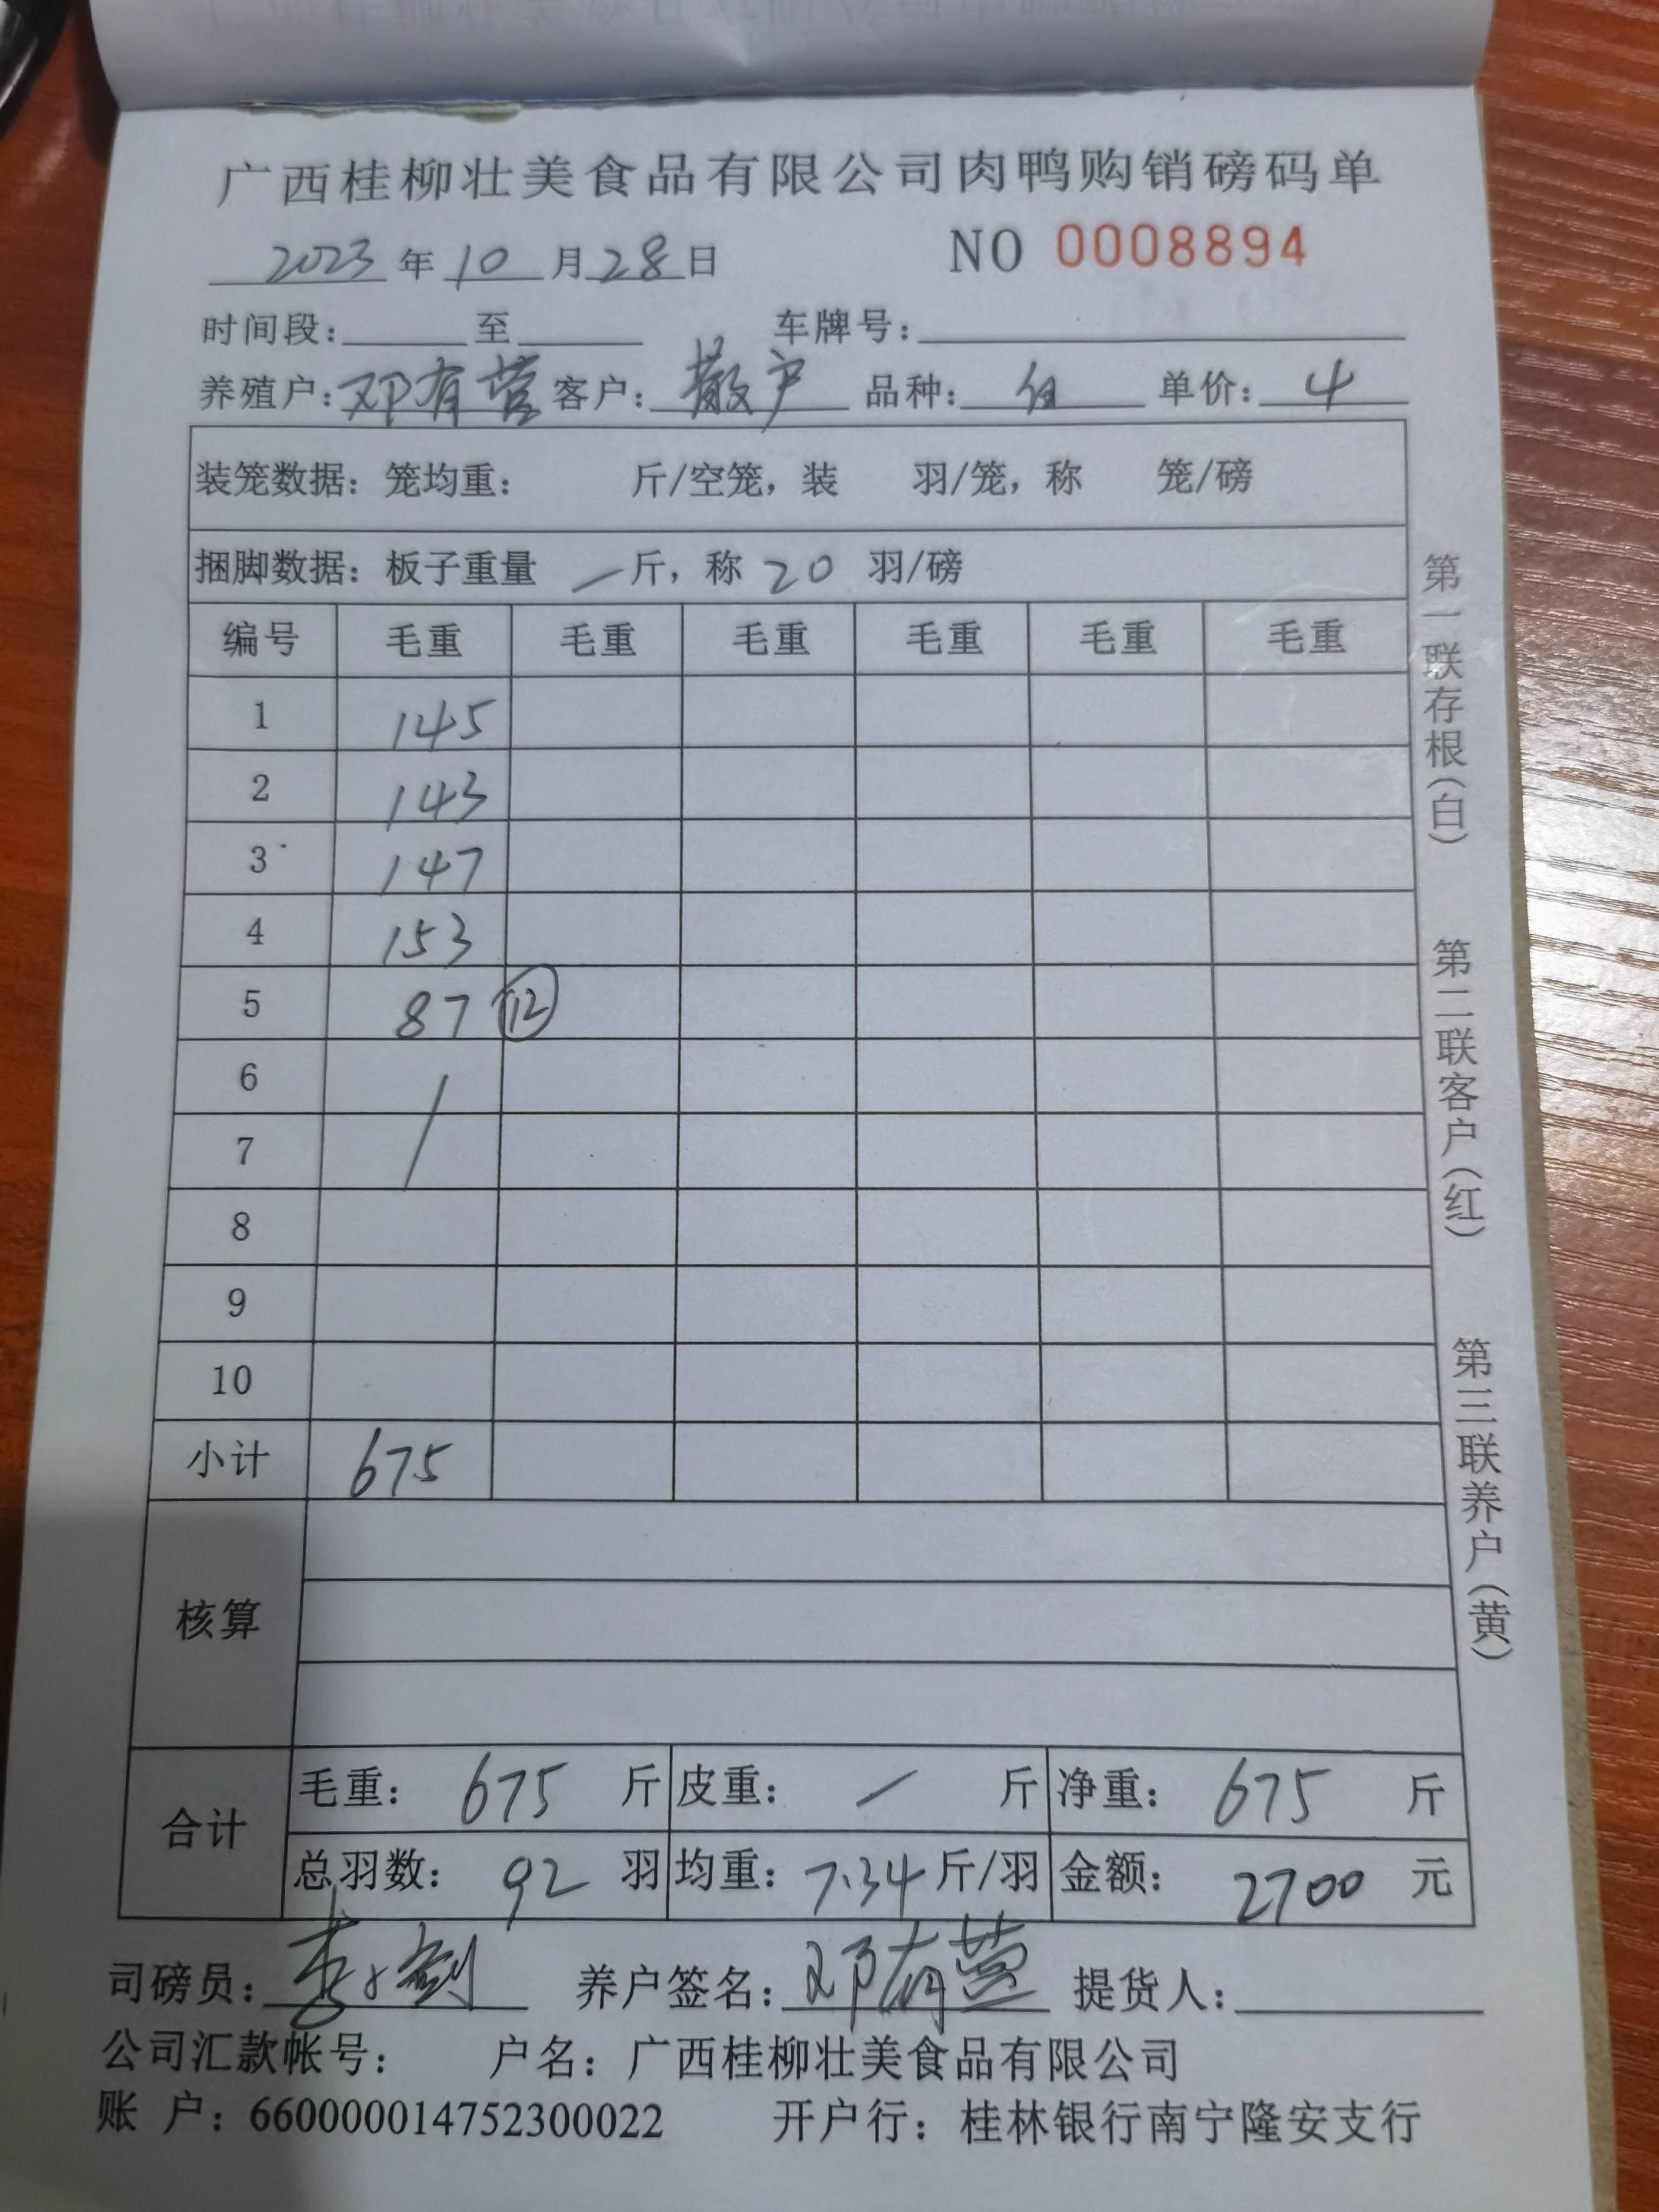 广西桂柳壮美食品有限公司肉鸭购销磅码单
2023 年 10 月 28 日 NO 0008894
时间段: 至 车牌号:
养殖户: 邓有营 客户: 散户 品种: 单价: 4
装笼数据: 笼均重: 斤/空笼, 装 羽/笼, 称 笼/磅
捆脚数据: 板子重量 一 斤, 称 20 羽/磅
编号 毛重 毛重 毛重 毛重 毛重 毛重
1 145
2 143
3 147
4 153
5 87 ⑫
6 /
7
8
9
10
小计 675
核算
合计
毛重: 675 斤 皮重: 一 斤 净重: 675 斤
总羽数: 92 羽 均重: 7.34 斤/羽 金额: 2700 元
司磅员: 养户签名: 邓有营 提货人:
公司汇款帐号: 户名: 广西桂柳壮美食品有限公司
账 户: 660000014752300022 开户行: 桂林银行南宁隆安支行
第一联存根(白)
第二联客户(红)
第三联养户(黄)